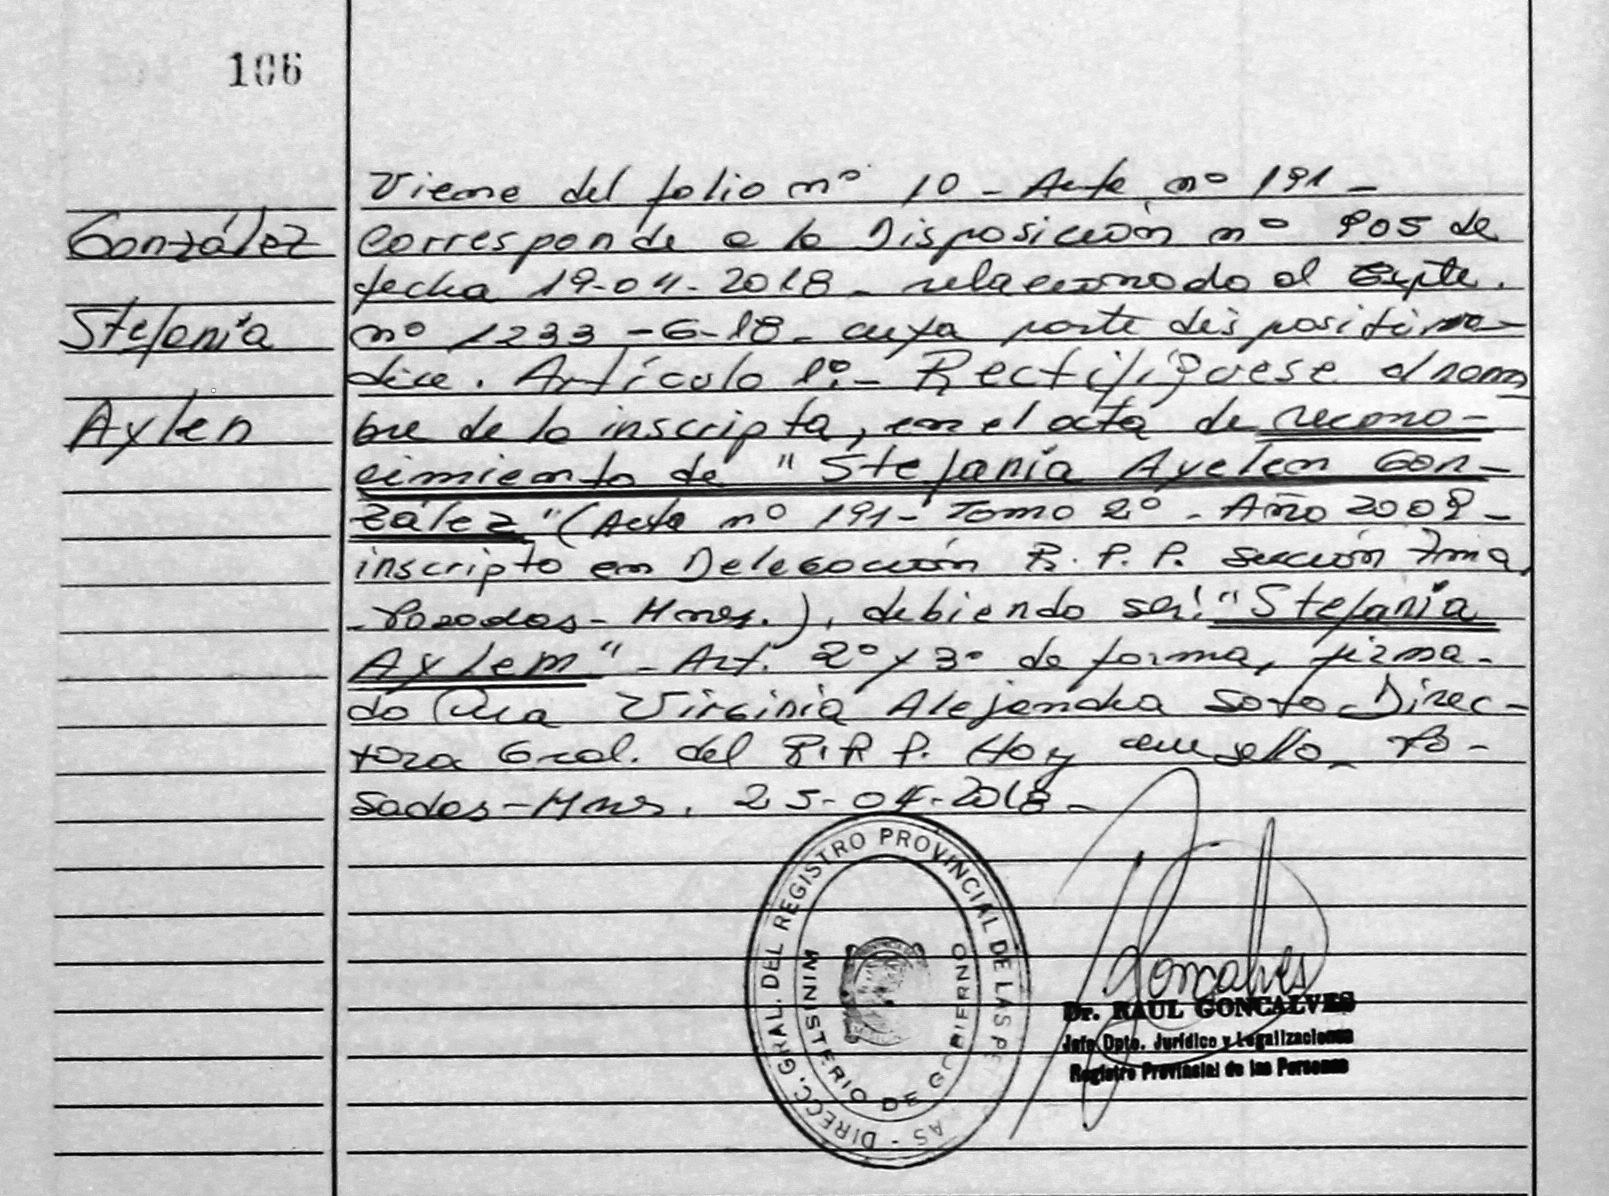 106
González
Stefanía
Aylen
Viene del folio nº 10 - Acta nº 191 -
Corresponde a la Disposición nº 905 de
fecha 19-04-2018 - relacionado al Expte.
nº 1233 - G-18 - cuya parte dispositiva
dice. Artículo 1º - Rectifíquese el nom
bre de la inscripta, en el acta de recono-
cimiento de "Stefanía Ayelen Gon-
zález" (Acta nº 191 - Tomo 2º - Año 2009 -
inscripto en Delegación R. P. P. sección 7ma.
- Posadas - Mnes.), debiendo ser: "Stefanía
Aylem" - Art. 2º y 3º de forma, firma-
do Virginia Alejandra Soto Direc-
tora Gral. del R. P. P. Hoy Po-
sadas - Mnes. 25-04-2018 -
DIRECC. GRAL. DEL REGISTRO PROVINCIAL DE LAS PE AS -
MINISTERIO DE GOBIERNO
Goncalves
Dr. RAUL GONCALVES
Jefe Dpto. Jurídico y Legalizaciones
Registro Provincial de las Personas